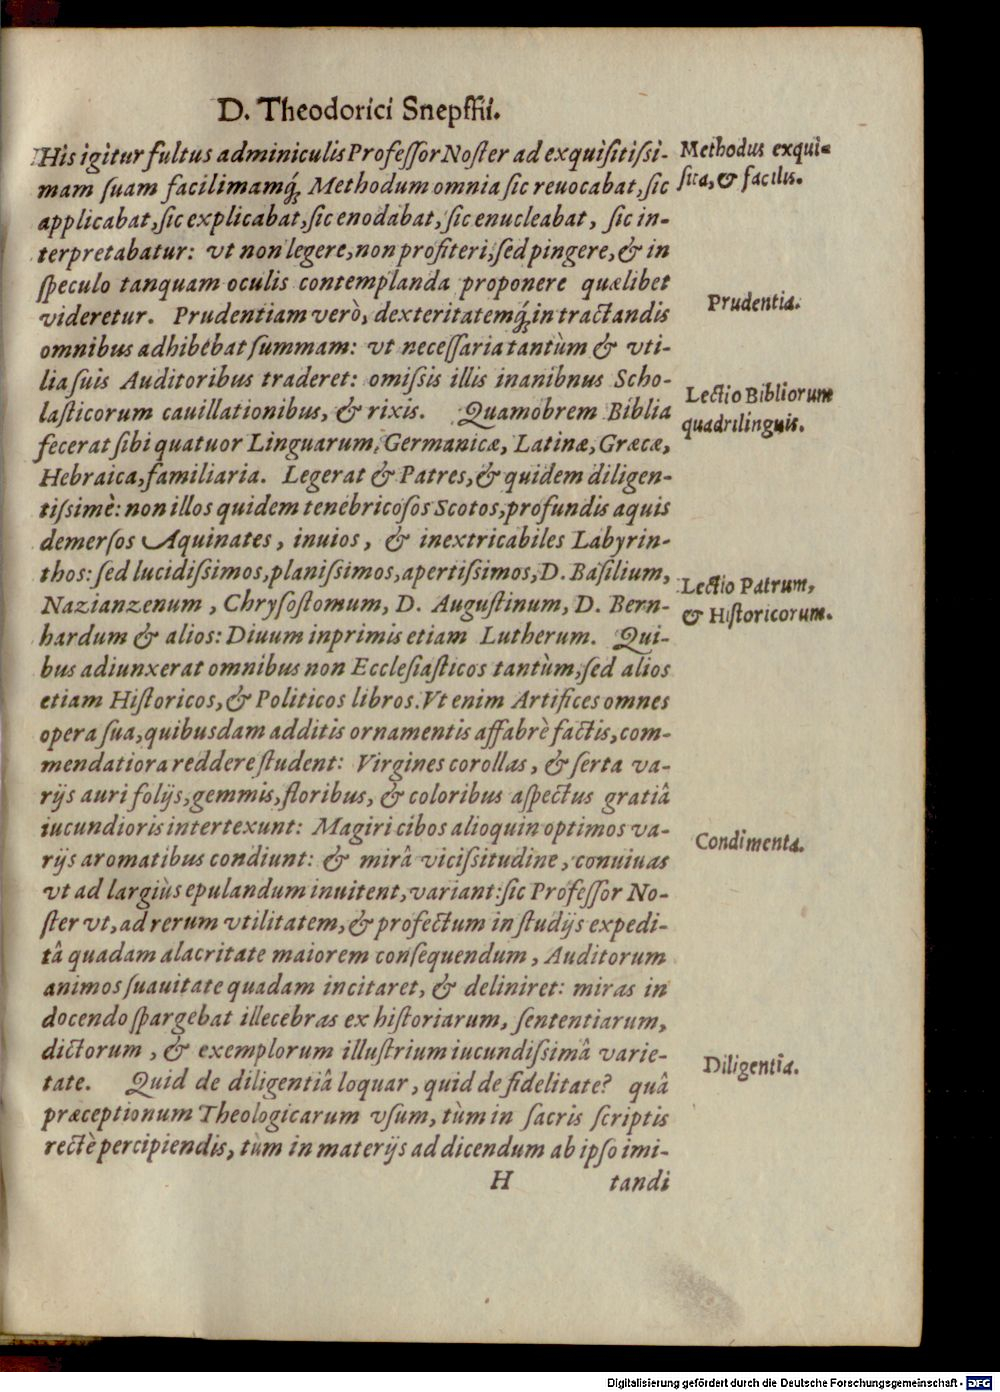 D. Theodorici Snepffii.
His igitur fultus adminiculis Professor Noster ad exquisitissi-
mam suam facilimamq́; Methodum omnia sic reuocabat, sic
applicabat, sic explicabat, sic enodabat, sic enucleabat, sic in-
terpretabatur: vt non legere, non profiteri, sed pingere, & in
speculo tanquam oculis contemplanda proponere quælibet
videretur. Prudentiam verò, dexteritatemq́; in tractandis
omnibus adhibebat summam: vt necessaria tantùm & vti-
lia suis Auditoribus traderet: omissis illis inanibnus Scho-
lasticorum cauillationibus, & rixis. Quamobrem Biblia
fecerat sibi quatuor Linguarum, Germanicæ, Latinæ, Græcæ,
Hebraica, familiaria. Legerat & Patres, & quidem diligen-
tissimè: non illos quidem tenebricosos Scotos, profundis aquis
demersos Aquinates, inuios, & inextricabiles Labyrin-
thos: sed lucidissimos, planissimos, apertissimos, D. Basilium,
Nazianzenum, Chrysostomum, D. Augustinum, D. Bern-
hardum & alios: Diuum inprimis etiam Lutherum. Qui-
bus adiunxerat omnibus non Ecclesiasticos tantùm, sed alios
etiam Historicos, & Politicos libros. Vt enim Artifices omnes
opera sua, quibusdam additis ornamentis affabrè factis, com-
mendatiora reddere student: Virgines corollas, & serta va-
rijs auri folijs, gemmis, floribus, & coloribus aspectus gratiâ
iucundioris intertexunt: Magiri cibos alioquin optimos va-
rijs aromatibus condiunt: & mirâ vicissitudine, conuiuas
vt ad largiùs epulandum inuitent, variant: sic Professor No-
ster vt, ad rerum vtilitatem, & profectum in studijs expedi-
tâ quadam alacritate maiorem consequendum, Auditorum
animos suauitate quadam incitaret, & deliniret: miras in
docendo spargebat illecebras ex historiarum, sententiarum,
dictorum, & exemplorum illustrium iucundissimâ varie-
tate. Quid de diligentiâ loquar, quid de fidelitate? quâ
præceptionum Theologicarum vsum, tùm in sacris scriptis
rectè percipiendis, tùm in materijs ad dicendum ab ipso imi-
H tandi
Methodus exqui-
sita, & facilis.
Prudentia.
Lectio Bibliorum
quadrilinguis.
Lectio Patrum,
& Historicorum.
Condimenta.
Diligentia.
Digitalisierung gefördert durch die Deutsche Forschungsgemeinschaft - DFG